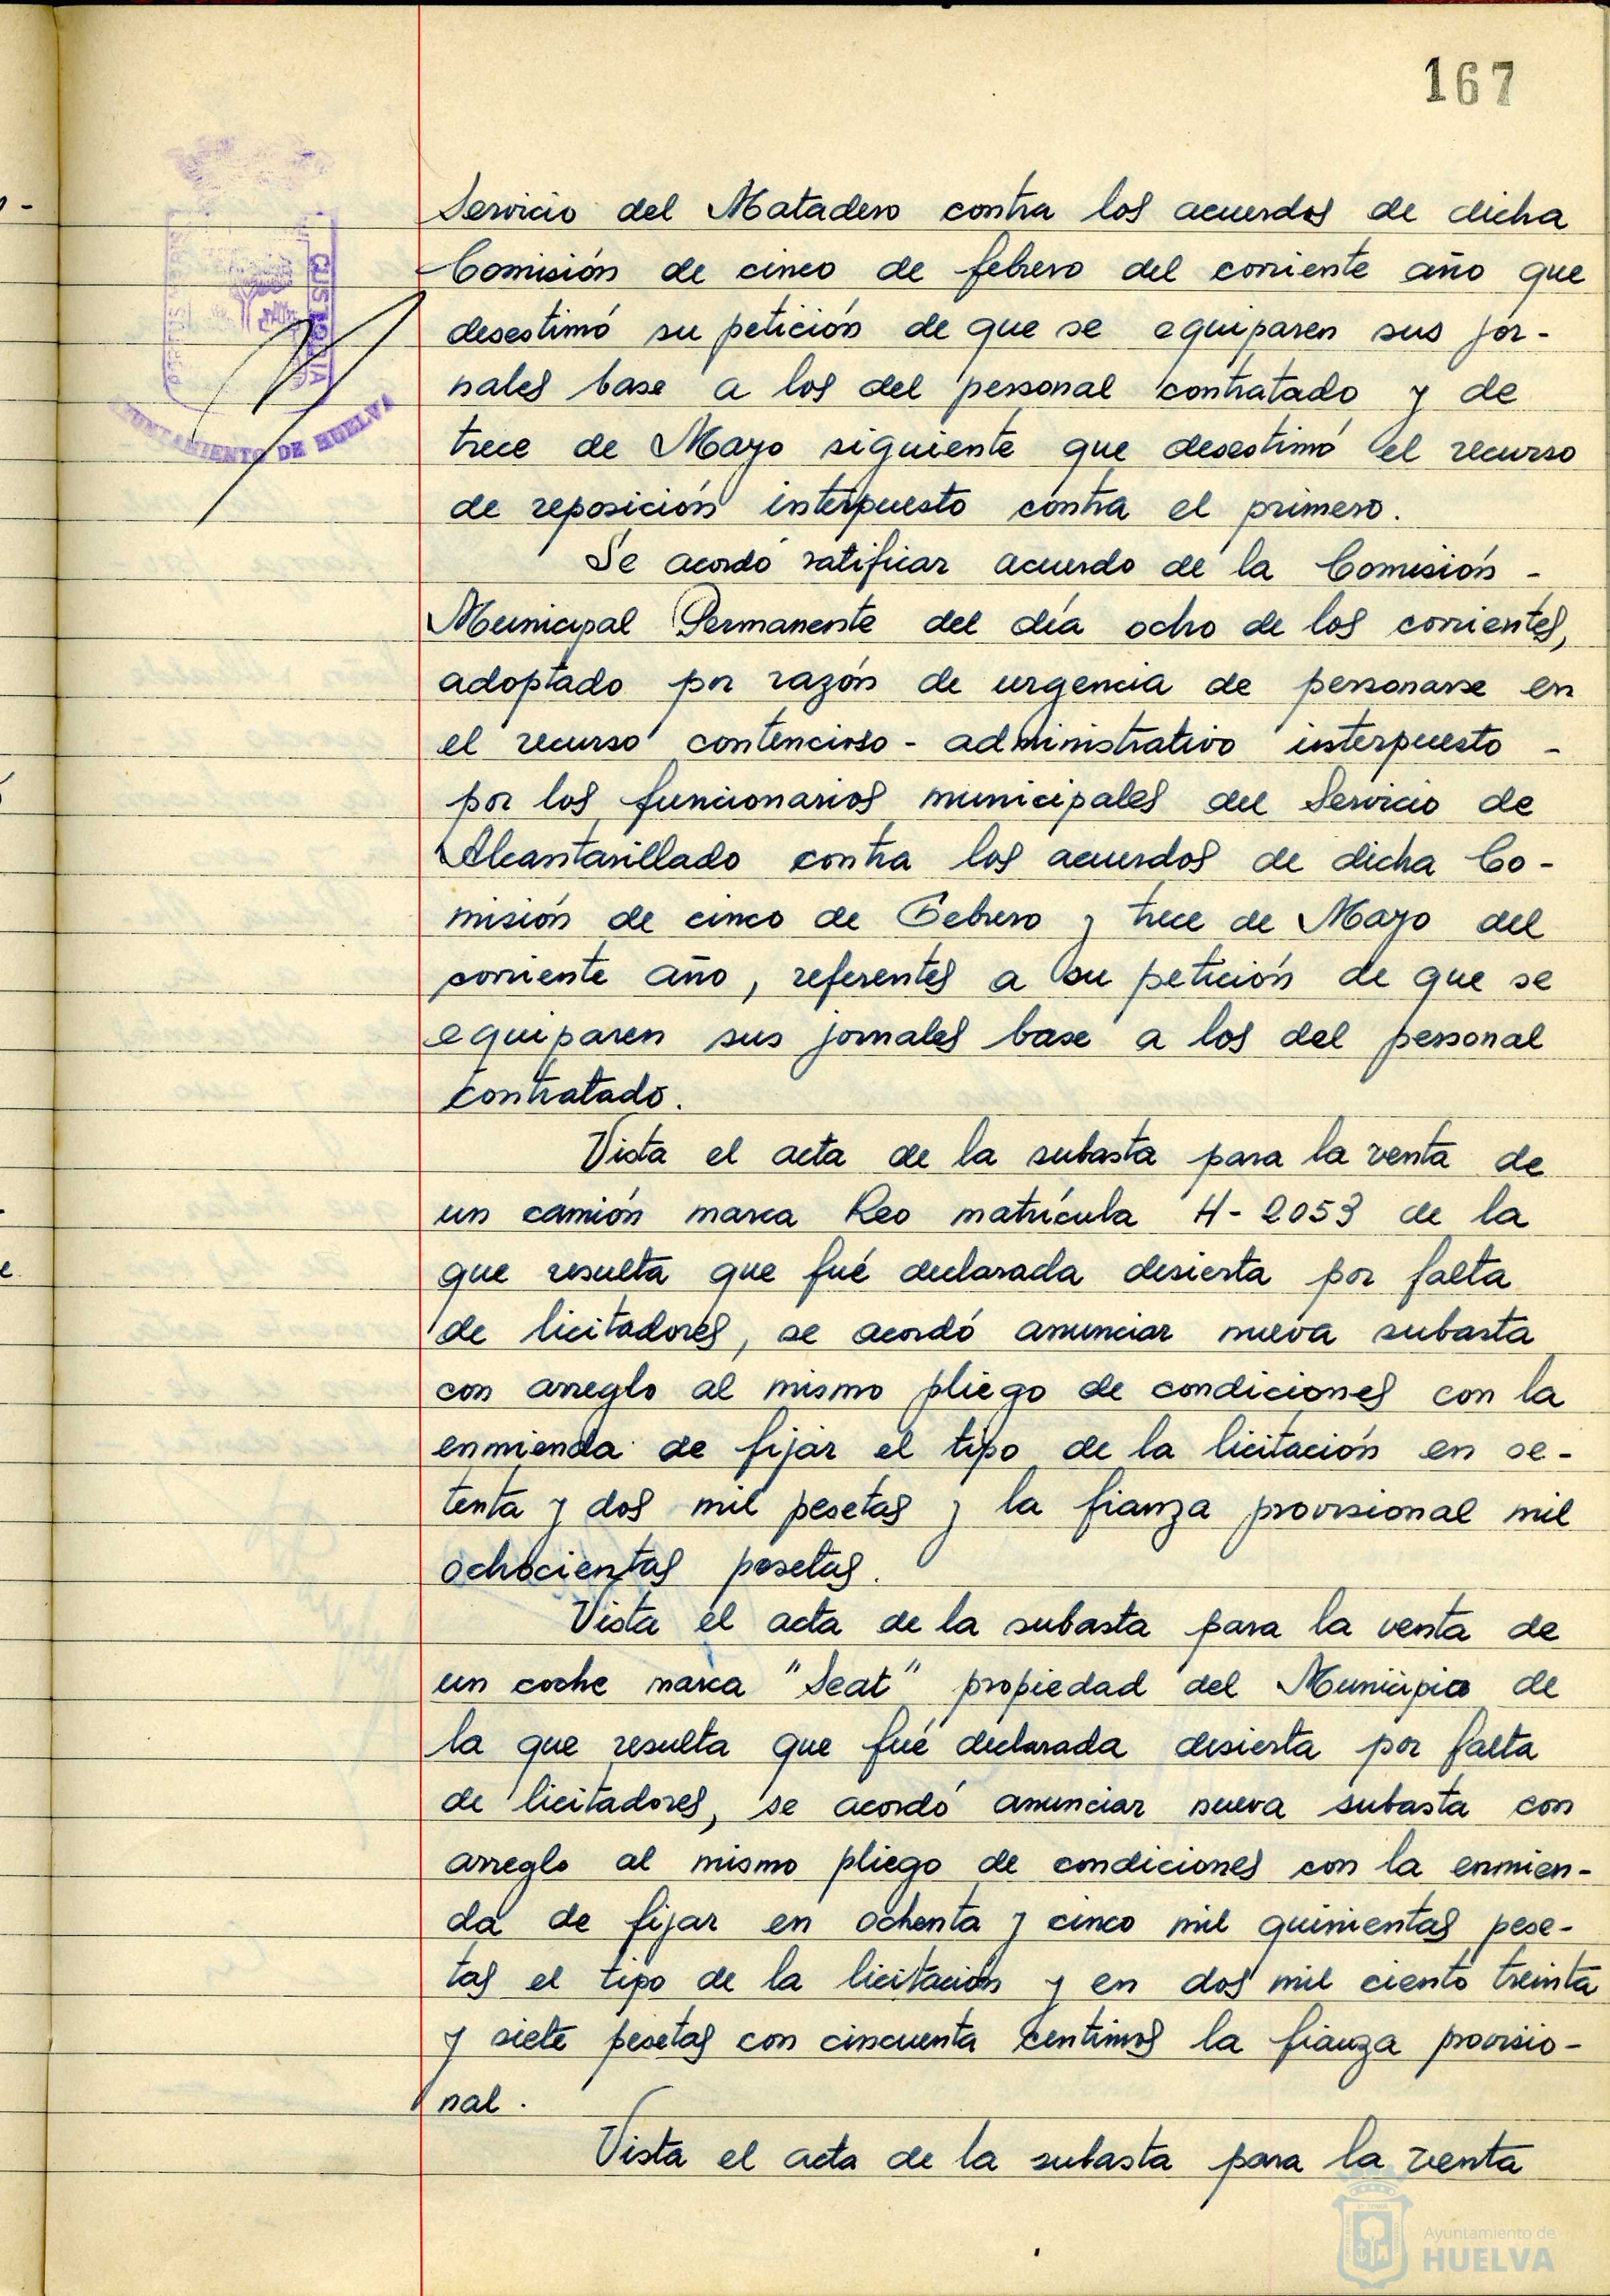 167
Servicio del Matadero contra los acuerdos de dicha
Comisión de cinco de febrero del corriente año que
desestimó su petición de que se equiparen sus jor-
nales base a los del personal contratado y de
trece de Mayo siguiente que desestimó el recurso
de reposición interpuesto contra el primero.
Se acordó ratificar acuerdo de la Comisión -
Municipal Permanente del día ocho de los corrientes,
adoptado por razón de urgencia de personarse en
el recurso contencioso - administrativo interpuesto -
por los funcionarios municipales del Servicio de
Alcantarillado contra los acuerdos de dicha Co-
misión de cinco de Febrero y trece de Mayo del
corriente año, referentes a su petición de que se
equiparen sus jornales base a los del personal
contratado.
Vista el acta de la subasta para la venta de
un camión marca Reo matrícula H-2053 de la
que resulta que fué declarada desierta por falta
de licitadores, se acordó anunciar nueva subasta
con arreglo al mismo pliego de condiciones con la
enmienda de fijar el tipo de la licitación en se-
tenta y dos mil pesetas y la fianza provisional mil
ochocientas pesetas.
Vista el acta de la subasta para la venta de
un coche marca "Seat" propiedad del Municipio de
la que resulta que fué declarada desierta por falta
de licitadores, se acordó anunciar nueva subasta con
arreglo al mismo pliego de condiciones con la enmien-
da de fijar en ochenta y cinco mil quinientas pese-
tas el tipo de la licitación y en dos mil ciento treinta
y siete pesetas con cincuenta centimos la fianza provisio-
nal.
Vista el acta de la subasta para la venta
CUSTODIA
AYUNTAMIENTO DE HUELVA
Ayuntamiento de
HUELVA